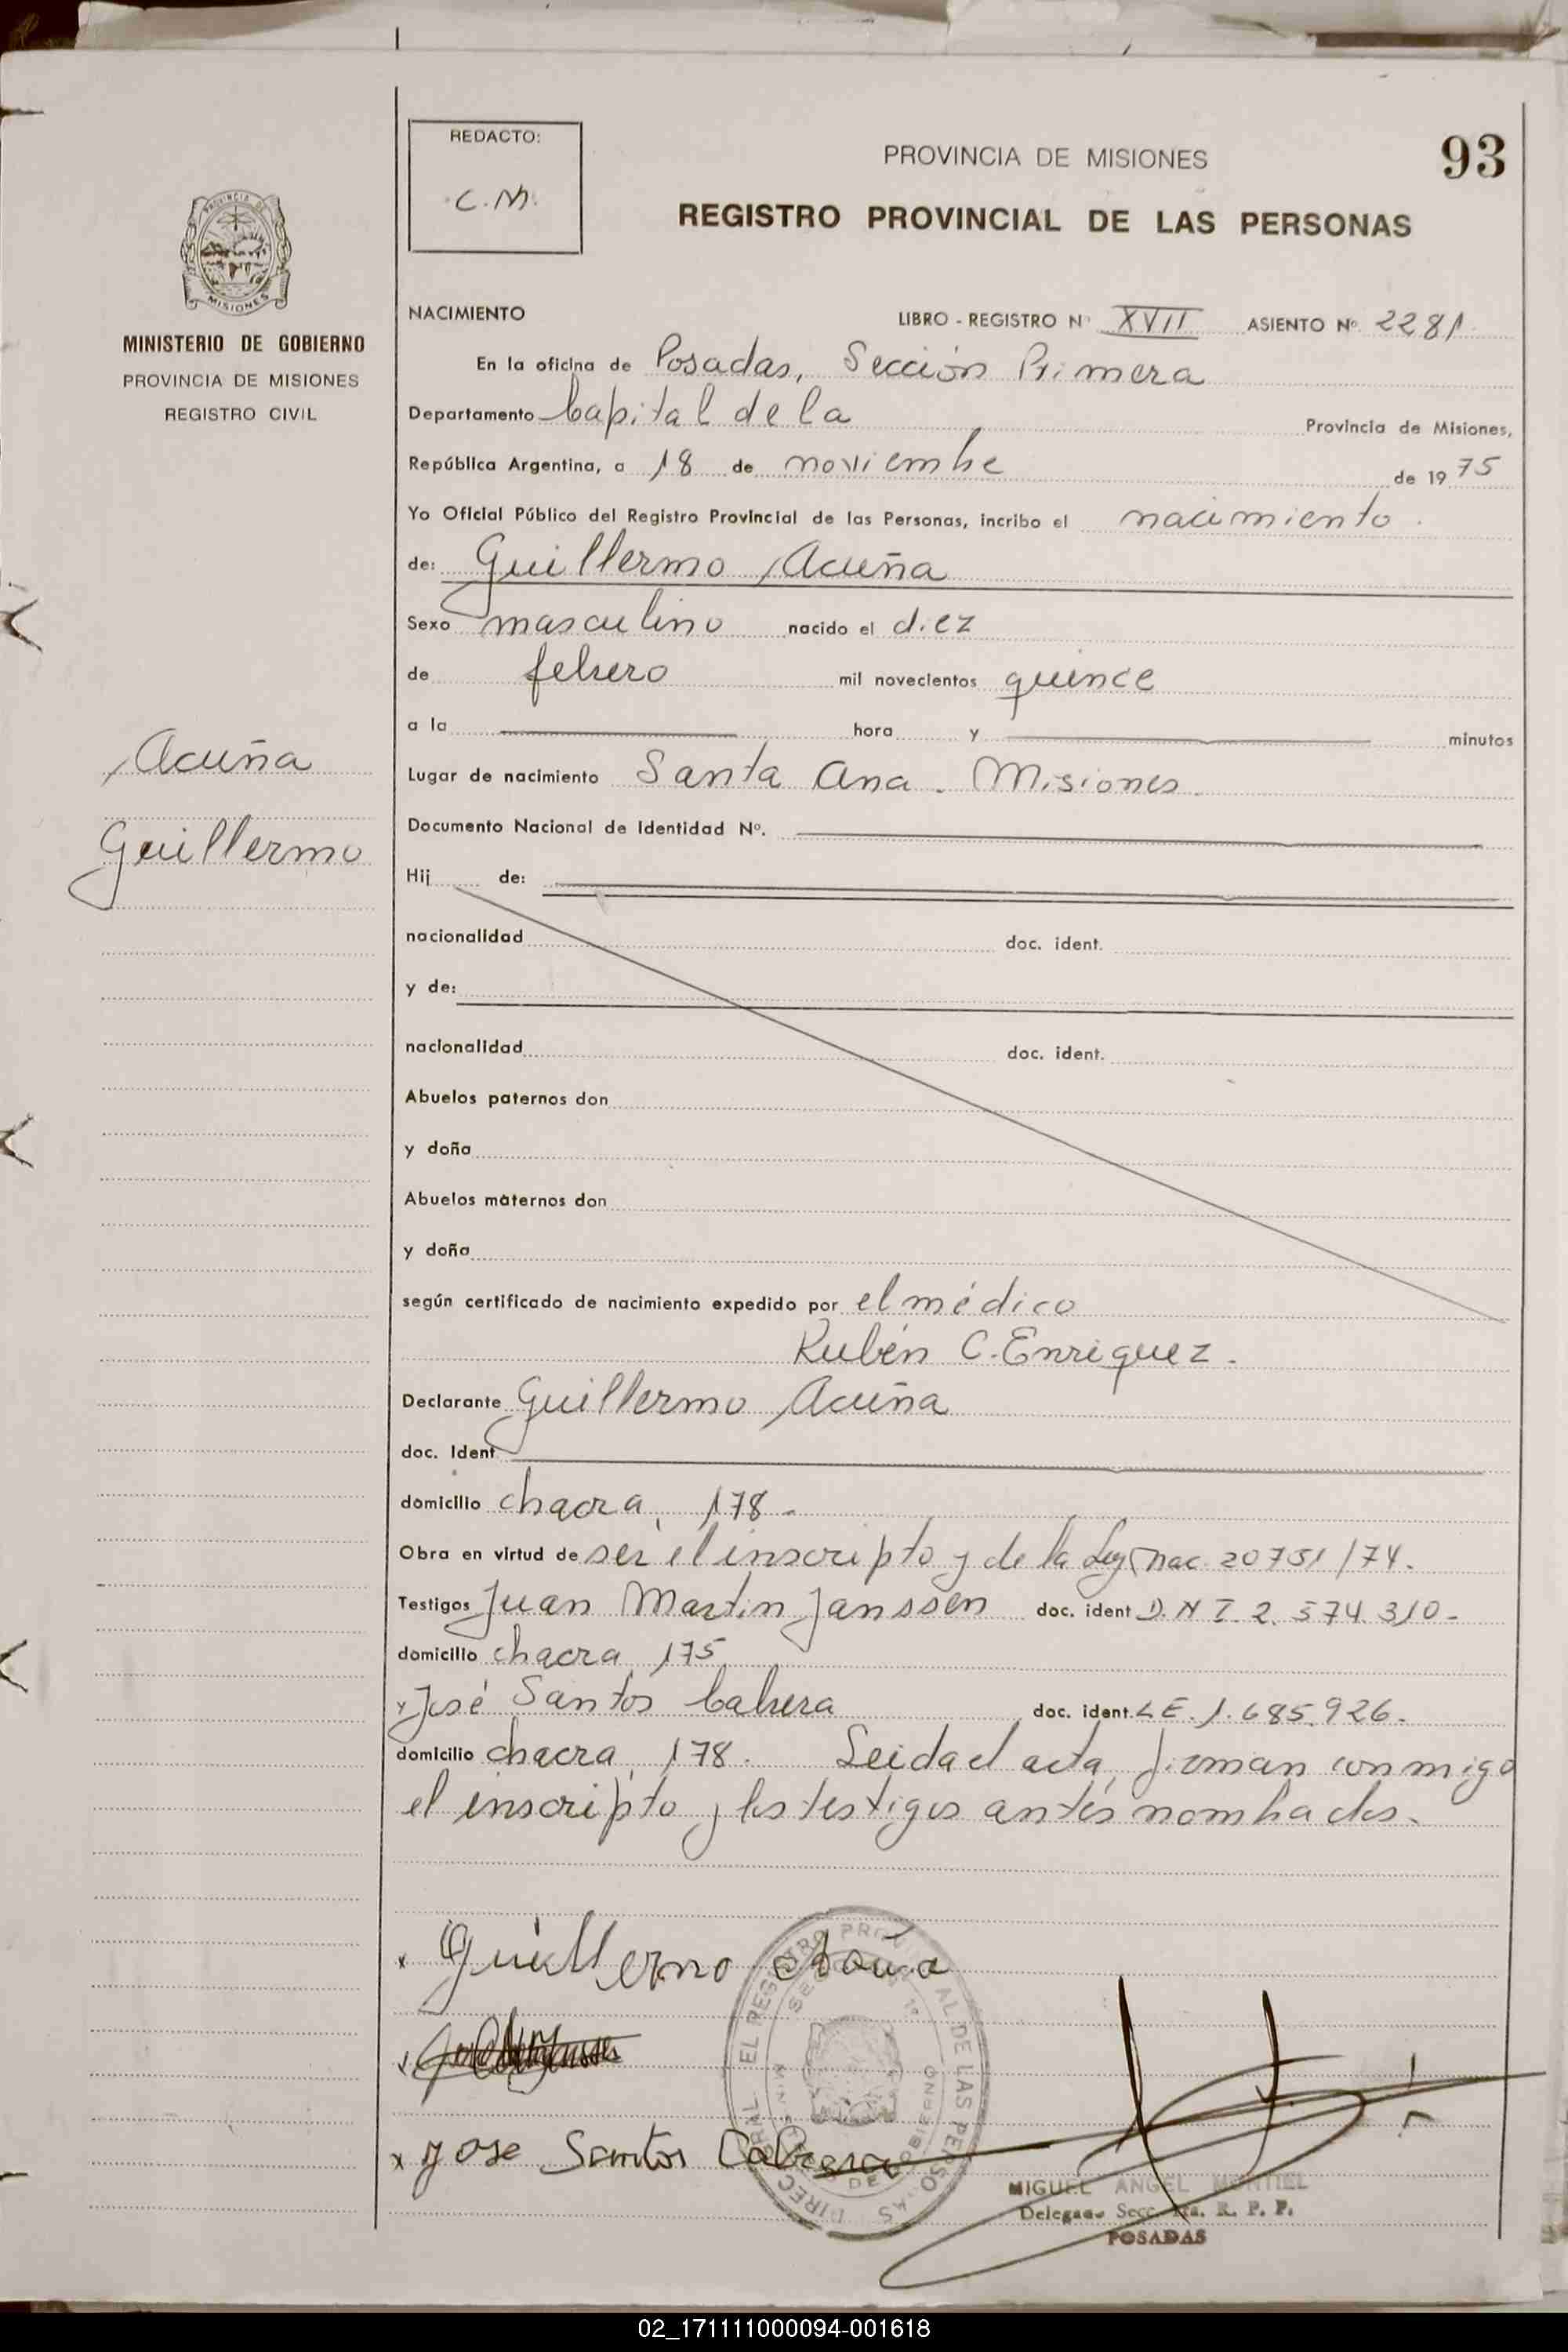 REDACTO:
C.M.
PROVINCIA DE MISIONES
93
REGISTRO PROVINCIAL DE LAS PERSONAS
PROVINCIA DE
MISIONES
MINISTERIO DE GOBIERNO
PROVINCIA DE MISIONES
REGISTRO CIVIL
NACIMIENTO LIBRO - REGISTRO Nº XVII ASIENTO Nº 2281
En la oficina de Posadas, Sección Primera
Departamento Capital de la Provincia de Misiones,
República Argentina, a 18 de noviembre de 1975
Yo Oficial Público del Registro Provincial de las Personas, incribo el nacimiento.
de: Guillermo Acuña
Sexo masculino nacido el diez
de febrero mil novecientos quince
a la hora y minutos
Acuña
Guillermo
Lugar de nacimiento Santa Ana. Misiones.
Documento Nacional de Identidad Nº.
Hij de:
nacionalidad doc. ident.
y de:
nacionalidad doc. ident.
Abuelos paternos don
y doña
Abuelos maternos don
y doña
según certificado de nacimiento expedido por el médico
Rubén C. Enriquez.
Declarante Guillermo Acuña
doc. Ident
domicilio chacra, 178-
Obra en virtud de ser el inscripto y de la Ley nac. 20751/74.
Testigos Juan Martin Janssen doc. ident D.N I. 2.574.310-
domicilio chacra 175
y José Santos Cabrera doc. ident. L E. 1.685.926.
domicilio chacra, 178. Leida el acta, firman conmigo
el inscripto y los testigos antes nombrados.
x Guillermo Acuña
x Jose Santos Cabrera
DIREC GRAL. EL REGISTRO PROVINCIAL DE LAS PERSONAS
SECC 1ª
MINIS DE GOBIERNO
MIGUEL ANGEL MONTIEL
Delegado Secc. 1ra. R. P. P.
POSADAS
02_171111000094-001618